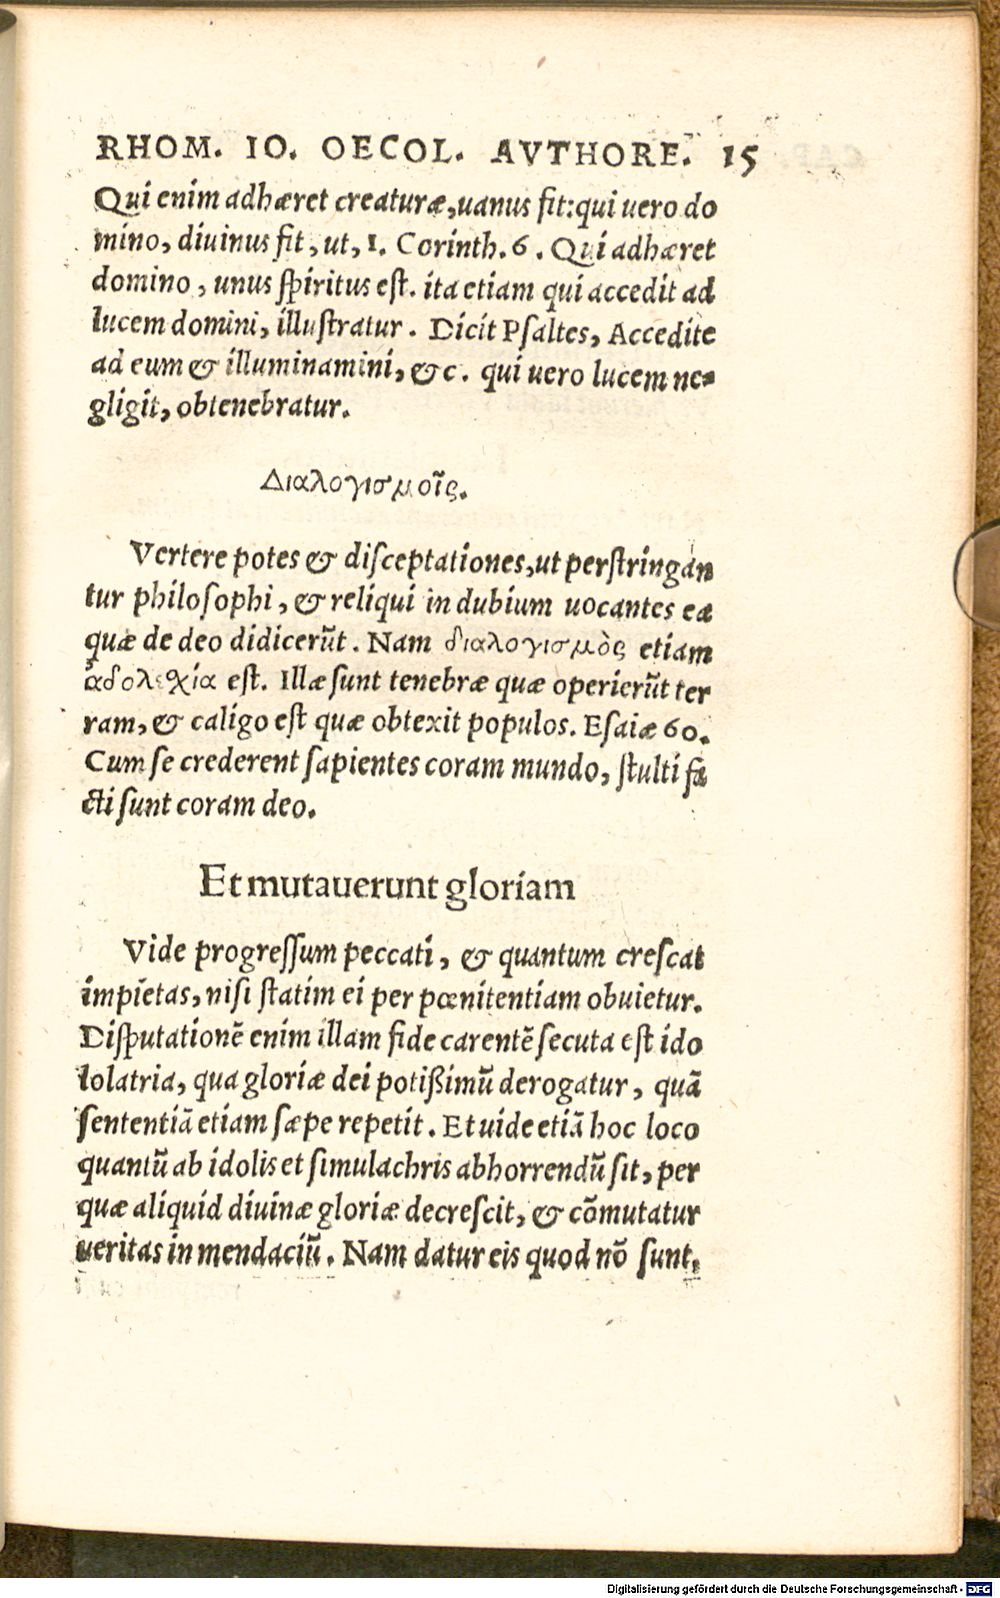 RHOM. IO. OECOL. AVTHORE. 15
Qui enim adhæret creaturæ, uanus fit: qui uero do
mino, diuinus fit, ut, 1. Corinth. 6. Qui adhæret
domino, unus spiritus est. ita etiam qui accedit ad
lucem domini, illustratur. Dicit Psaltes, Accedite
ad eum & illuminamini, &c. qui uero lucem ne-
gligit, obtenebratur.
Διαλογισμοῖς.
Vertere potes & disceptationes, ut perstringan
tur philosophi, & reliqui in dubium uocantes ea
quæ de deo didicerūt. Nam διαλογισμὸς etiam
ἀδολεχία est. Illæ sunt tenebræ quæ operierūt ter
ram, & caligo est quæ obtexit populos. Esaiæ 60.
Cum se crederent sapientes coram mundo, stulti fa
cti sunt coram deo.
Et mutauerunt gloriam
Vide progressum peccati, & quantum crescat
impietas, nisi statim ei per pœnitentiam obuietur.
Disputationē enim illam fide carentē secuta est ido
lolatria, qua gloriæ dei potißimū derogatur, quā
sententiā etiam sæpe repetit. Et uide etiā hoc loco
quantū ab idolis et simulachris abhorrendū sit, per
quæ aliquid diuinæ gloriæ decrescit, & cōmutatur
ueritas in mendaciū. Nam datur eis quod nō sunt,
Digitalisierung gefördert durch die Deutsche Forschungsgemeinschaft - DFG